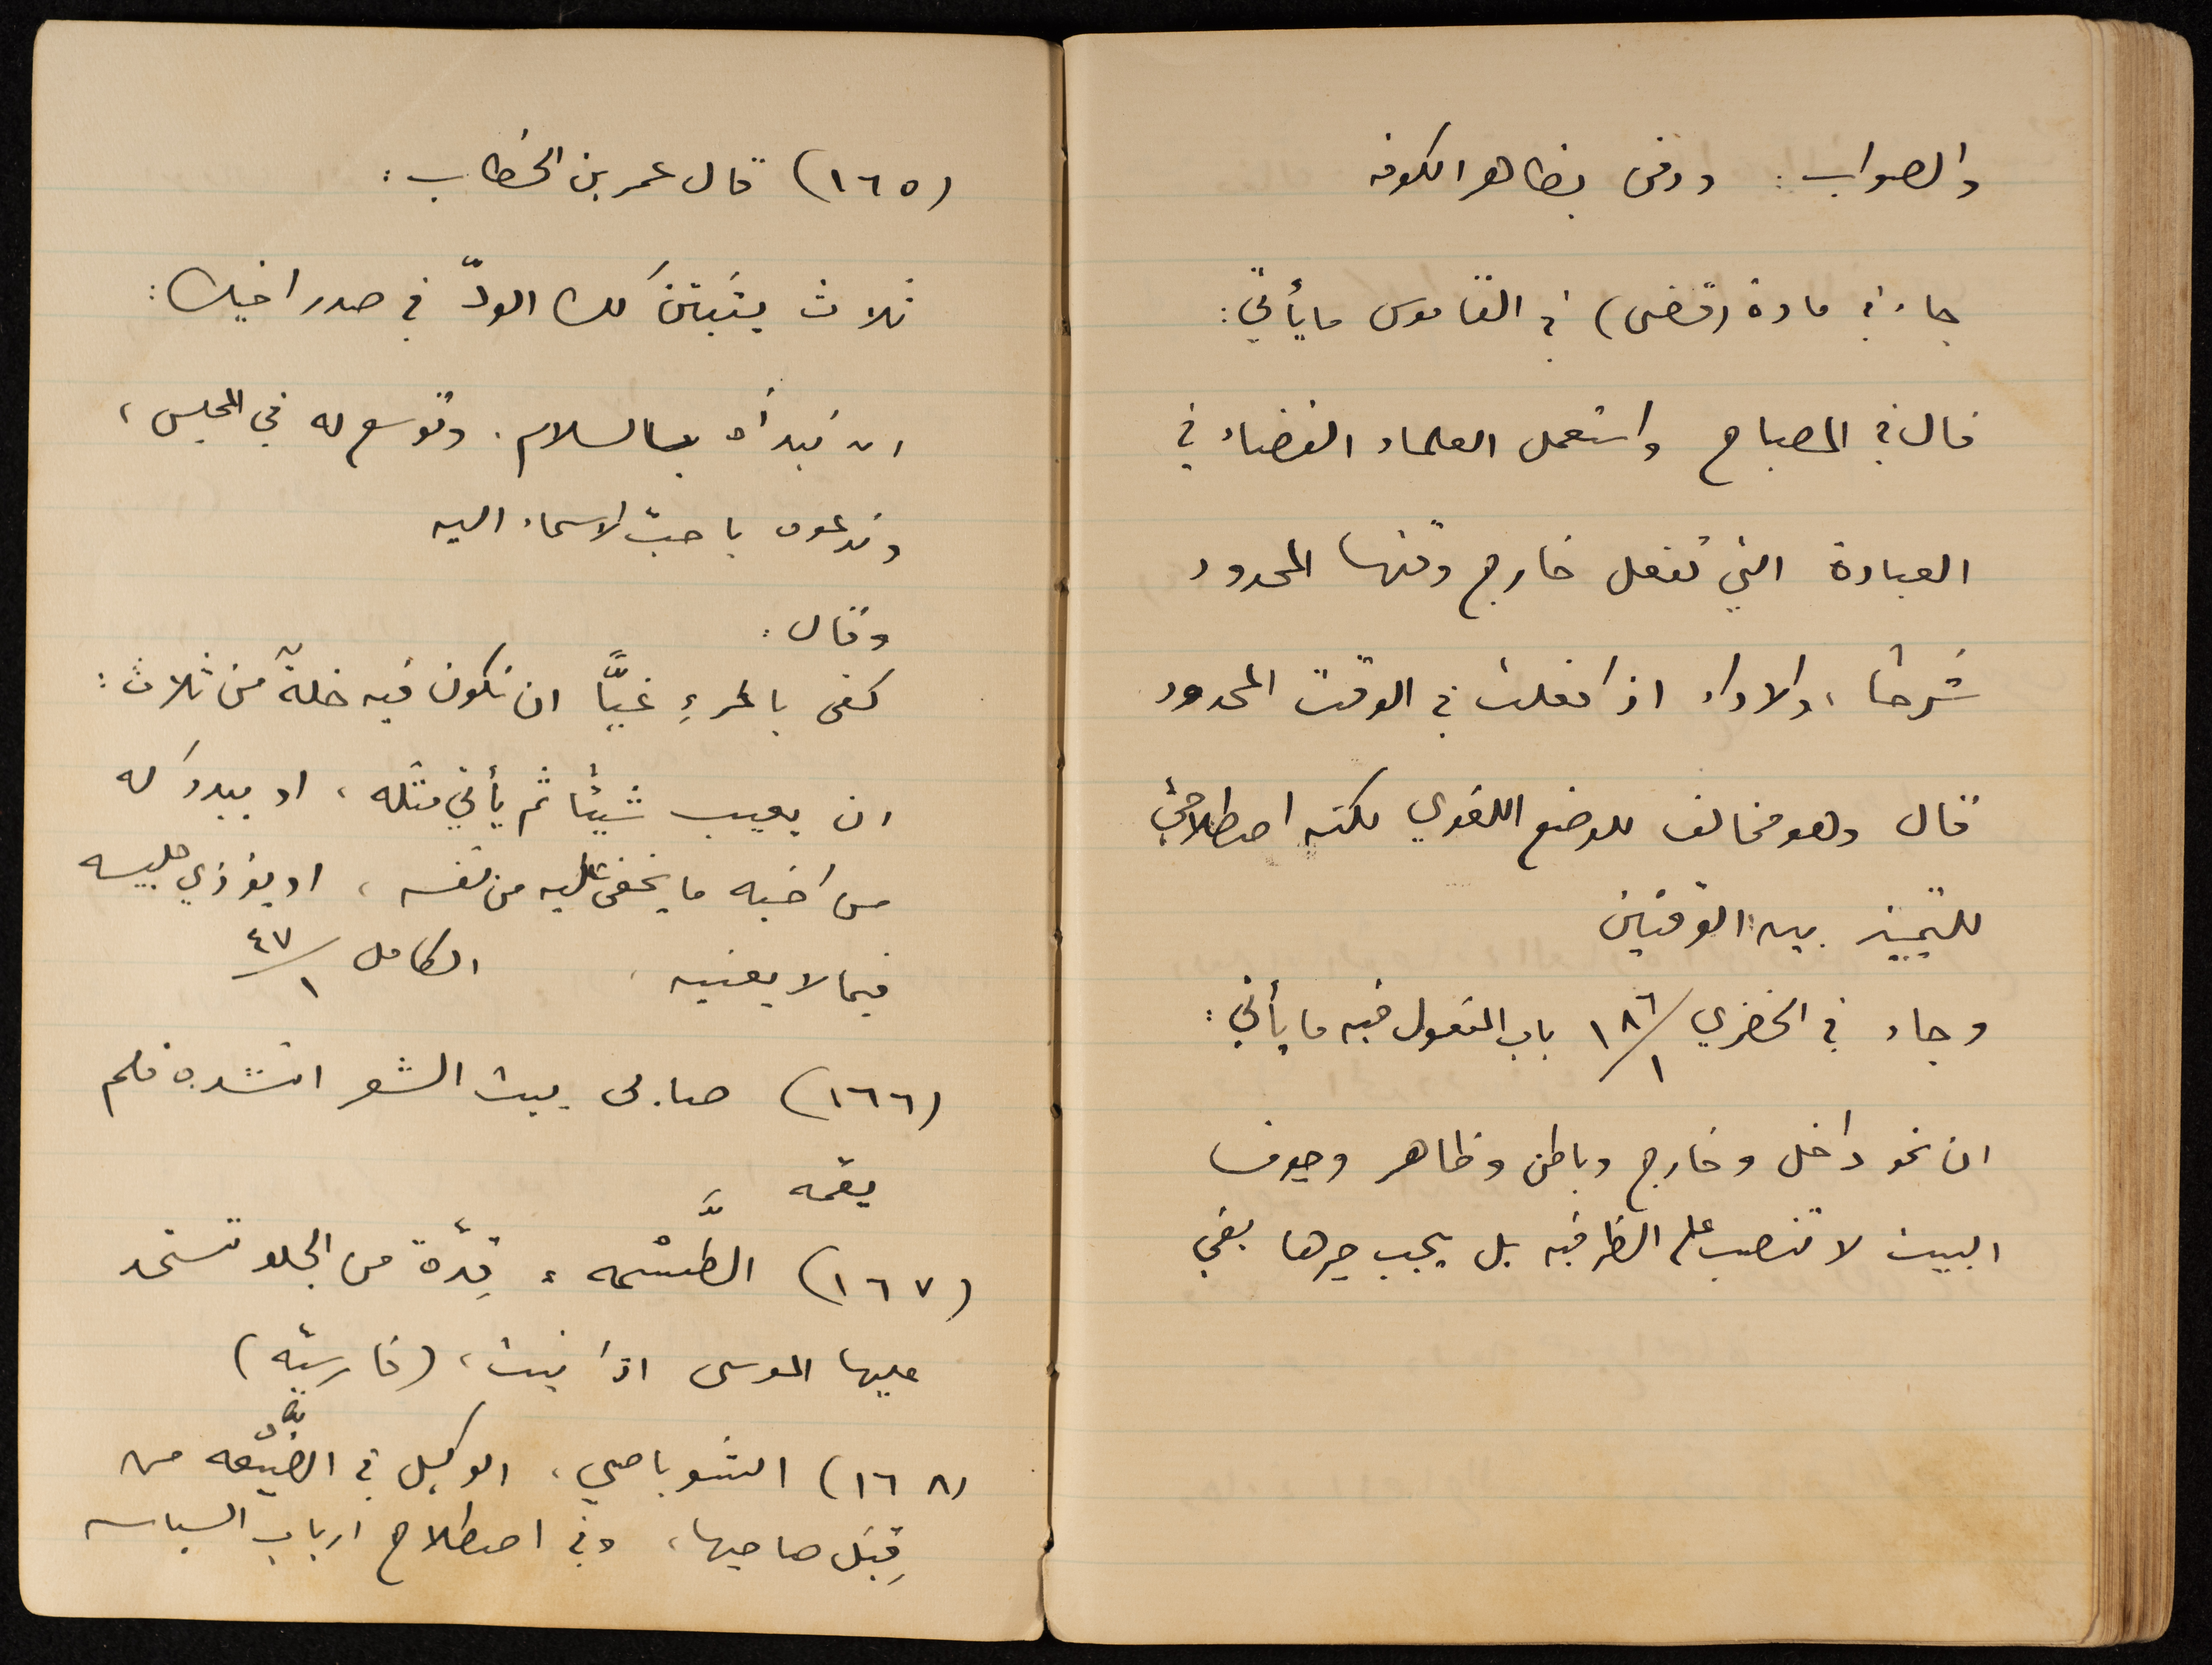 والصواب: ودفن بظاهر الكوفه
جاء في مادة (قضى) في القاموس ما يأتي:
قال في المصباح واستعمل العلماء القضاء في
العبادة التي تفعل خارج وقتها المحدود
شرعًا، والاداء اذا فعلت في الوقت المحدود
قال وهو مخالف للوضع اللغوي لكنه اصطلاحيّ
للتمييز بين الوقتين
وجاء في الخضري ١٨٦/١ باب المفعول فيه ما يأتي:
ان نحو داخل وخارج وباطن وظاهر وجوف
البيت لا تنصب على الظرفيه بل يجب جرها بفي
(١٦٥) قال عمر بن الخطاب:
ثلاث يثبتنَ لك الودّ في صدر اخيك:
ان تبدأه بالسلام. وتوسع له في المجلس،
وتدعوه باحبّ الاسماء اليه
وقال:
كفى بالمرءِ غيًّا ان تكون فيه خلةٌ من ثلاث:
ان يعيب شيئًا ثم يأتي مثله، او يبدوَ له
من اخيه ما يخفى عليه من نفسه، او يؤذي جليسه
فيما لا يعنيه، الكامل ٤٧/١
(١٦٦) صابى بيت الشعر انشده فلم
يقمه
(١٦٧) الطَّسْمه، قِدّة من الجلد تستحد
عليها الموسى اذا نبت، (فارسيّه)
(١٦٨) الشوباصي، الوكيل في الضَّيْعه من
قِبَل صاحبها، وفي اصطلاح ارباب السياسه